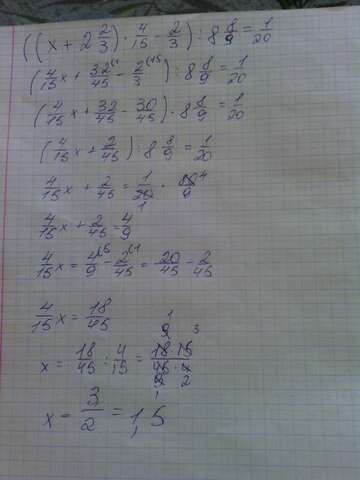 ((x + 2 2/3) · 4/15 - 2/3) : 8 8/9 = 1/20
(4/15 x + 32/45 - 2/3) : 8 8/9 = 1/20
(4/15 x + 32/45 - 30/45) · 8 8/9 = 1/20
(4/15 x + 2/45) : 8 8/9 = 1/20
4/15 x + 2/45 = 1/20 · 80/9
4/15 x + 2/45 = 4/9
4/15 x = 4/9 - 2/45 = 20/45 - 2/45
4/15 x = 18/45
x = 18/45 : 4/15 = 18·15/45·4
x = 3/2 = 1,5